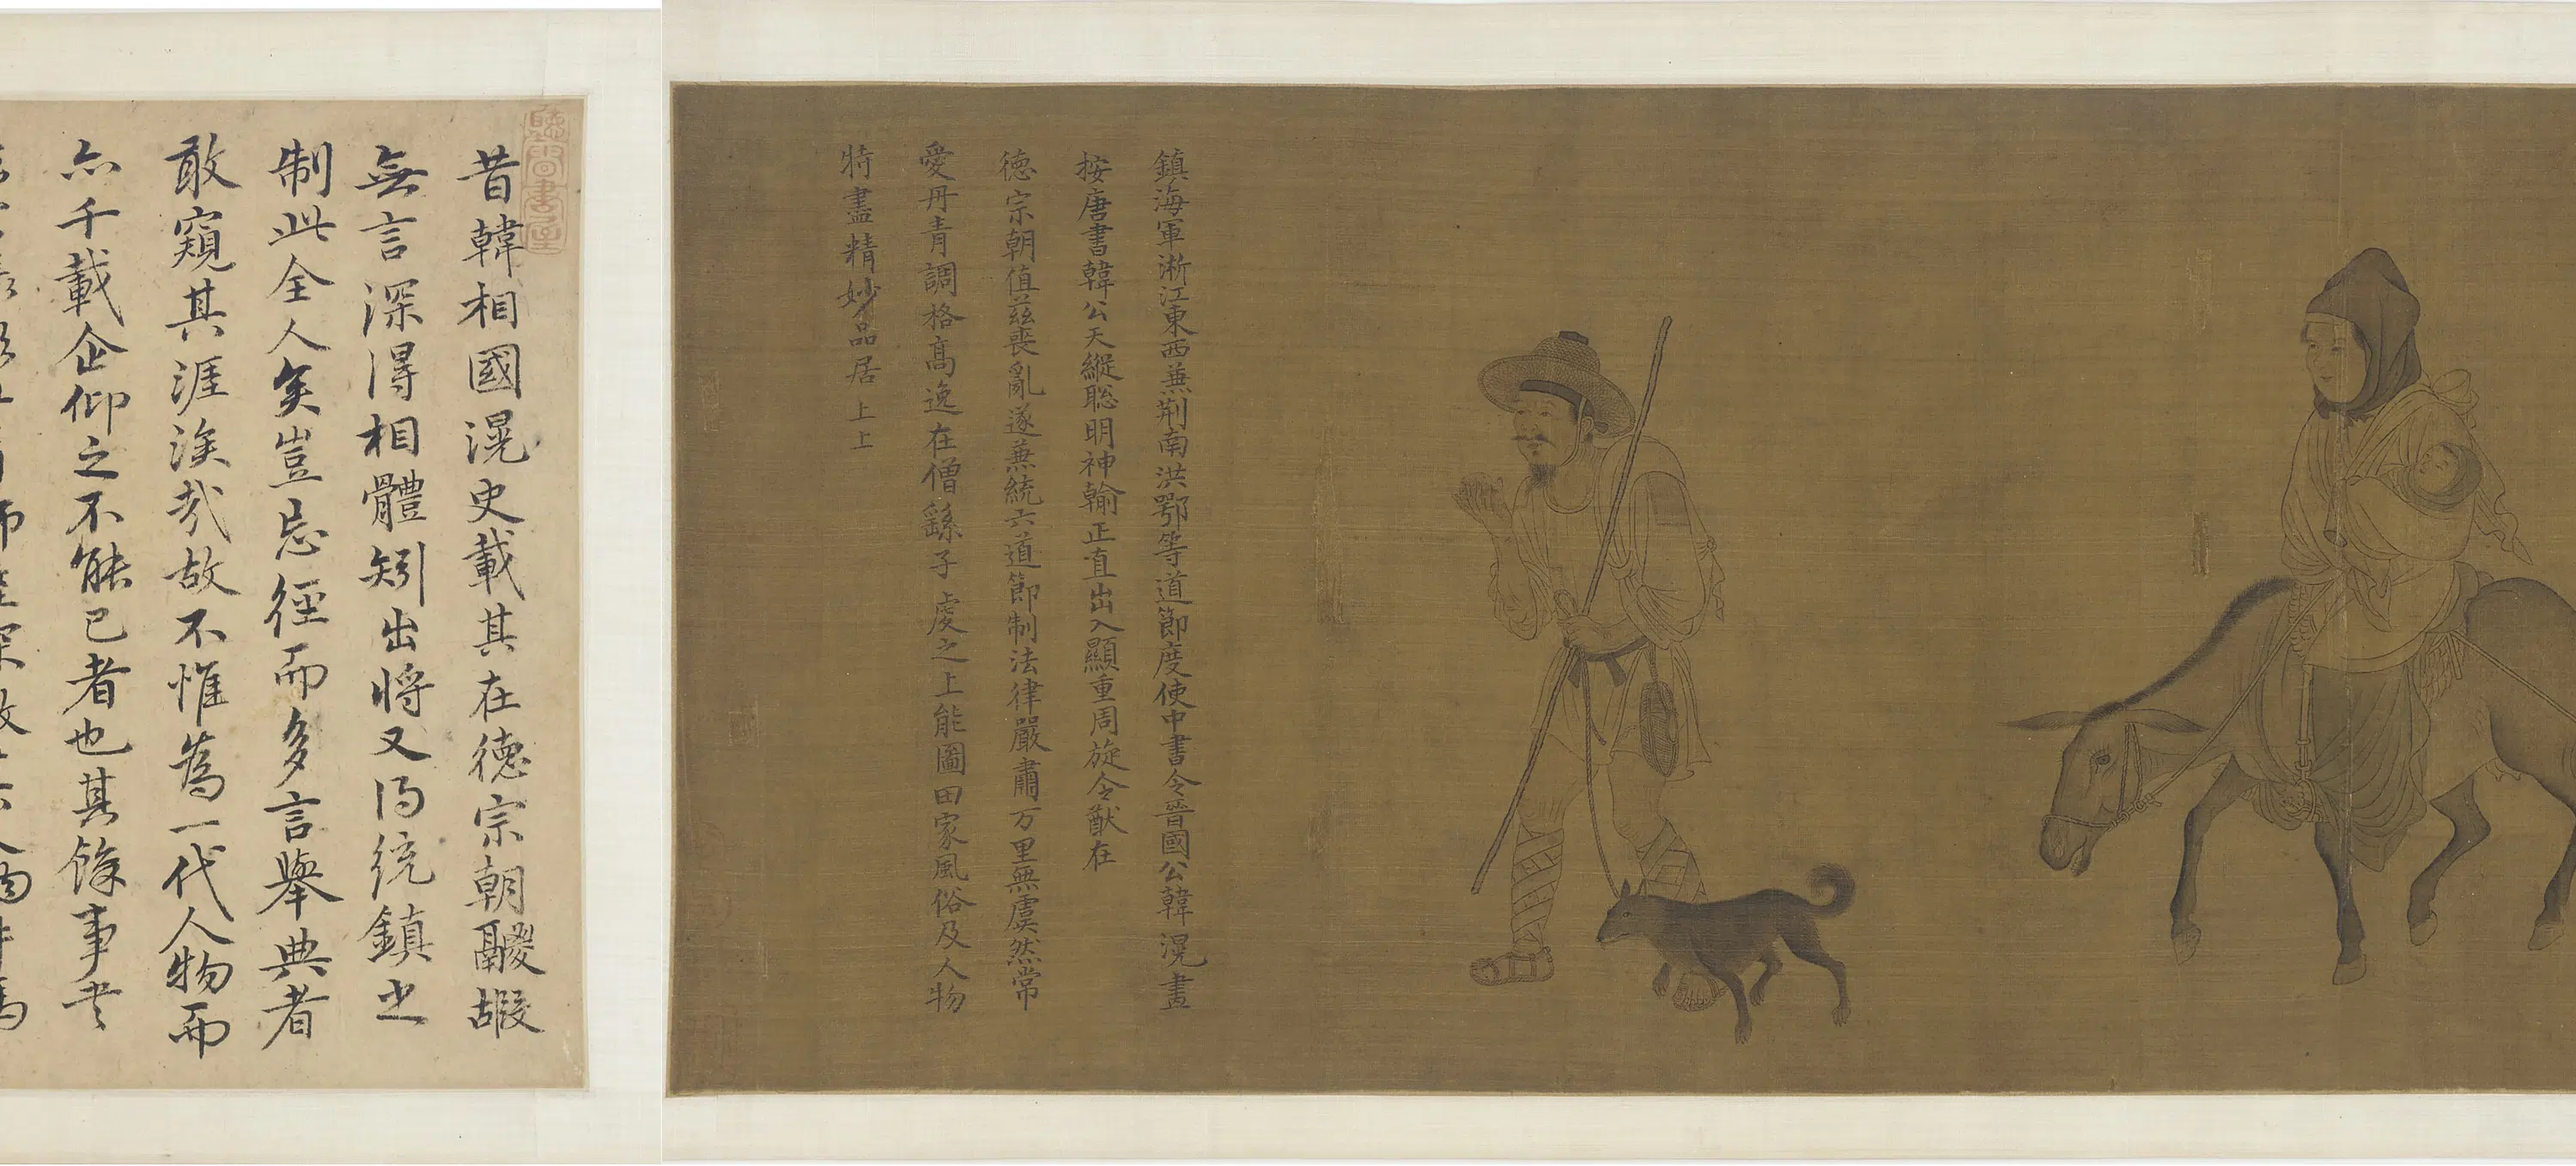 鎮海軍淅江東西兼荆南洪鄂等道節度使中書令晉國公韓滉畫
按唐書韓公天縱聡明神輸正直出入顯重周旋令猷在
德宗朝值茲喪亂遂兼統六道節制法律嚴肅万里無虞然常
愛丹青調格高逸在僧繇子虔之上能圖田家風俗及人物
特盡精妙品居上上
昔韓相國滉史載其在德宗朝鬷嘏
無言深得相體矧出將又得統鎮之
制此全人矣豈忌徑而多言舉典者
敢窺其涯涘哉故不惟為一代人物而
亦千載企仰之不能已者也其餘事者